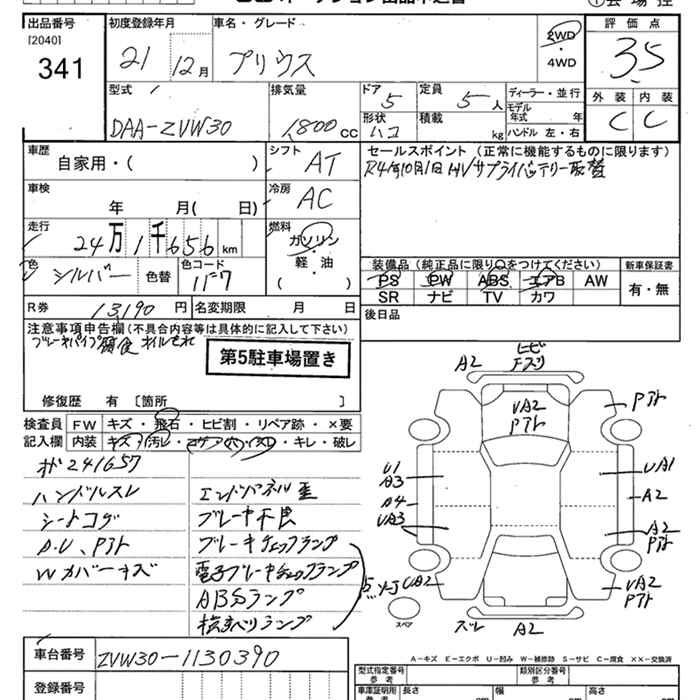 出品番号 初度登録年月 車名・グレード 評価点
[2040]
341
21 12月 プリウス 2WD・4WD 3.5
型式 排気量 ドア 定員 ディーラー・並行 外装 内装
DAA-ZVW30 1800cc 5 5人 モデル年式 年 C C
形状 ハコ 積載 kg ハンドル 左・右
車歴 シフト セールスポイント(正常に機能するものに限ります)
自家用・( ) AT R4年10月1日HVサプライバッテリー取替
車検 冷房
年 月( 日) AC
走行 燃料
24万1千656km ガソリン
軽・油
( )
色 色替 色コード 装備品(純正品に限り○をつけてください) 新車保証書
シルバー 1F7 PS PW ABS エアB AW 有・無
SR ナビ TV カワ
R券 13,190円 名変期限 月 日 後日品
注意事項申告欄(不具合内容等は具体的に記入して下さい)
ブレーキパイプ腐食 オイルもれ
第5駐車場置き
修復歴 有〔箇所 〕
検査員 FW キズ・飛石・ヒビ割・リペア跡・×要
記入欄 内装 キズ・汚レ・コゲ・穴・スレ・キレ・破レ
241657
ハンドルスレ エンドパネル歪
シートコゲ ブレーキ不良
A.U、Pアト ブレーキチェックランプ
Wカバーキズ 電子ブレーキチェックランプ
ABSランプ
横すべりランプ
A2 ヒビ
UA2
Pアト
Pアト
U1
A3
UA1
A4 A2
UA3 A2
Pアト
UA2 UA2
Pアト
スペア
スレ A2
車台番号 ZVW30-1130390
登録番号
A-キズ E-エクボ U-凹み W-補修跡 S-サビ C-腐食 ××-交換済
型式指定番号 参考 類別区分番号 参考
車庫証明用 長さ 幅 高さ